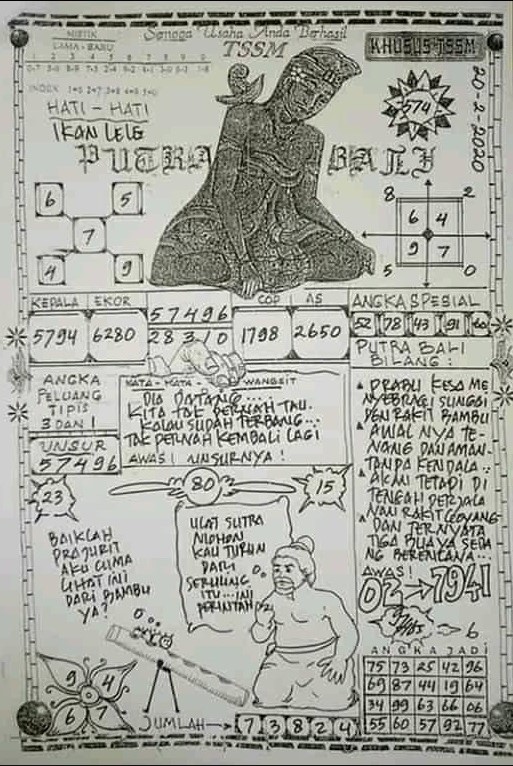 Semoga Usaha Anda Berhasil
TSSM
KHUSUS TSSM
MISTIK
LAMA - BARU
1 2 3 4 5 6 7 8 9 0
INDEX
HATI - HATI
IKAN LELE
PUTRA BALI
574
20-2-2020
6 5
7
4 9
8 2
6 4
9 7
5 0
KEPALA EKOR
5794 6280
57496
28310
COP AS
1798 2650
ANGKA SPESIAL
52 78 43 91 60
PUTRA BALI
BILANG :
ANGKA
PELUANG
TIPIS
3 DAN 1
UNSUR
57496
KATA - KATA - WANGSIT
DIA DATANG...
KITA TAK PERNAH TAU.
KALAU SUDAH TERBANG...
TAK PERNAH KEMBALI LAGI
AWAS! UNSURNYA!
PRABU KESA ME
NYEBRAGI SUNGGI
DGN RAKIT BAMBU
AWAL NYA TE-
NANG DAN AMAN-
TANPA KENDALA..
AKAN TETAPI DI
TENGAH PERJALA
NAN RAKIT GOYANG
DAN TERNYATA
TIGA BUAYA SEDA
NG BERENCANA...
AWAS!
02 → 7941
6
23
80
15
BAIKLAH
PRAJURIT
AKU CUMA
LIHAT INI
DARI BAMBU
YA?
ULAT SUTRA
MOHON
KAU TURUN
DARI
SERULING
ITU...INI
PERINTAH
9 4
6 7
JUMLAH → 7 3 8 2 4
ANGKA JADI
75 73 25 42 96
69 87 44 19 64
34 99 63 66 06
55 60 57 92 77